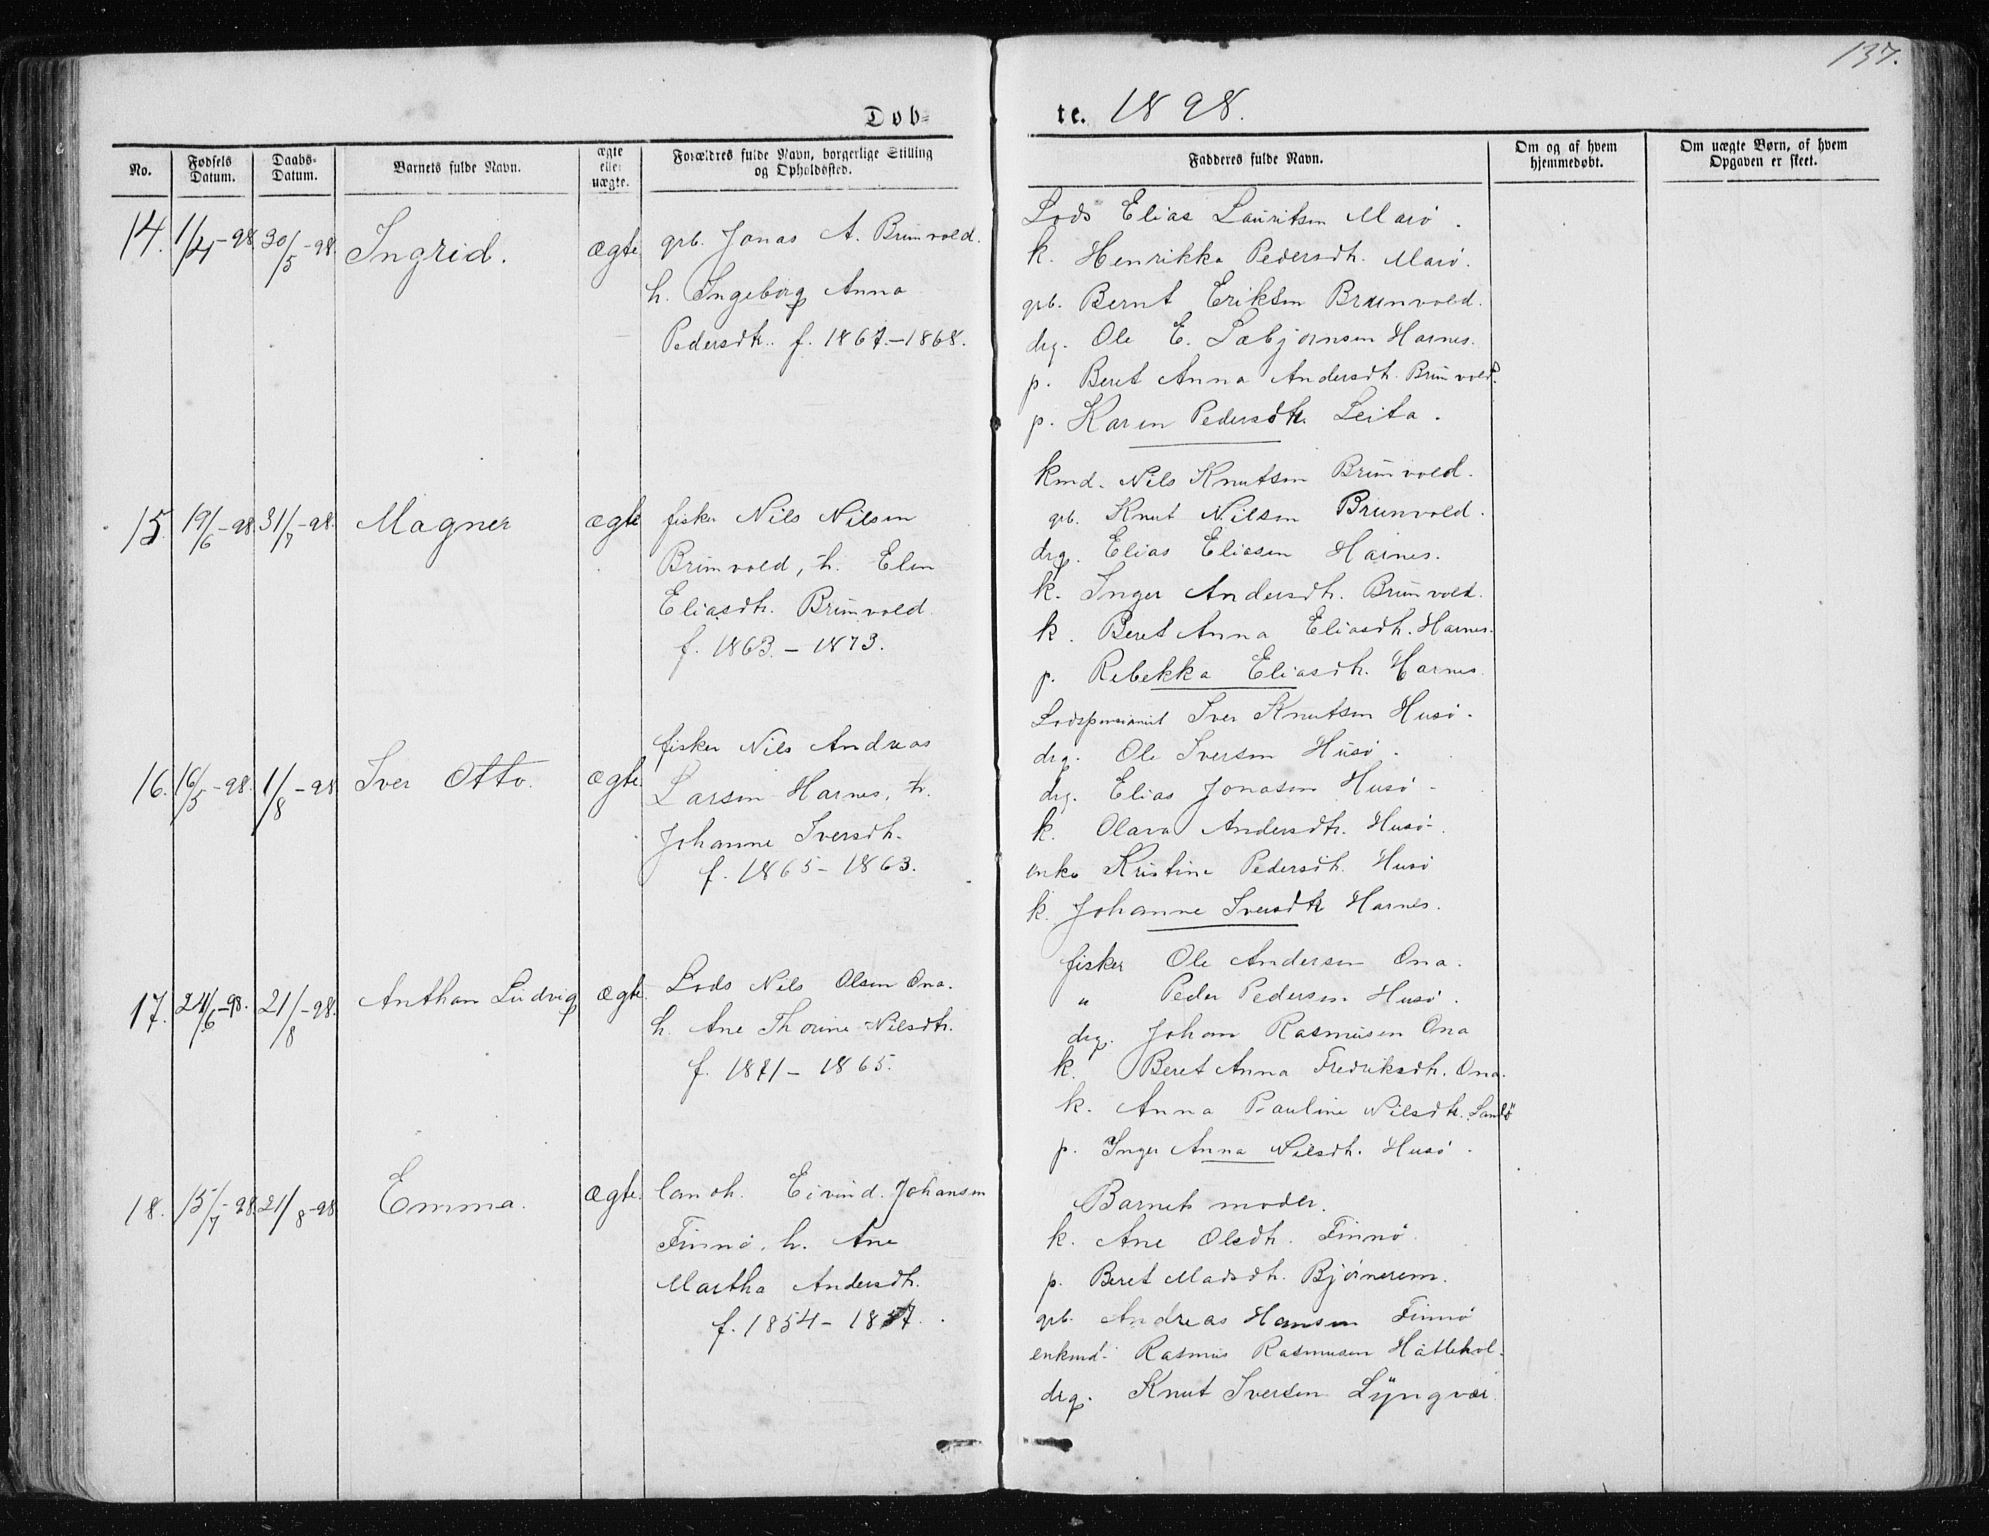 137.
Døb-
te. 1898.
No.
Fødsels Datum.
Daabs- Datum.
Barnets fulde Navn.
ægte eller uægte.
Forældres fulde Navn, borgerlige Stilling
og Opholdssted.
Fadderes fulde Navn.
Om og af hvem
hjemmedøbt.
Om uægte Børn, af hvem
Opgaven er skeet.
14. 1/4-98 30/5-98 Ingrid. ægte
grb. Jonas A. Brunvold.
h. Ingeborg Anna
Pedersdtr. f. 1867.-1868.
Lods Elias Lauritsen Marø.
k. Henrikka Pedersdtr. Marø.
grb. Bernt Eriksen Brunvold.
drg. Ole E. Sæbjørnsen Harnes.
p. Beret Anna Andersdtr. Brunvold.
p. Karen Pedersdtr. Leita.
15. 19/6-98. 31/7-98. Magner ægte
fisker Nils Nilsen
Brunvold, h. Elen
Eliasdtr. Brunvold.
f. 1863.-1873.
kmd. Nils Knutsen Brunvold.
grb. Knut Nilsen Brunvold.
drg. Elias Eliasen Harnes.
k. Inger Andersdtr. Brunvold.
k. Beret Anna Eliasdtr. Harnes.
p. Rebekka Eliasdtr. Harnes.
16. 16/5-98. 1/8-98 Iver Otto. ægte.
fisker Nils Andreas
Larsen Harnes, h.
Johanne Iversdtr.
f. 1865-1863.
Lodspensionist Iver Knutsen Husø.
drg. Ole Iversen Husø.
drg. Elias Jonasen Husø.
k. Olava Andersdtr. Husø.
enke Kristine Pedersdtr. Husø
k. Johanne Iversdtr Harnes.
17. 24/6-98. 21/8-98. Anthon Ludvig ægte.
Lods Nils Olsen Ona.
h. Ane Thorine Nilsdtr.
f. 1871-1865.
fisker Ole Andersen Ona.
" Peder Pedersen Husø.
drg. Johan Rasmusen Ona
k. Beret Anna Fredriksdtr. Ona.
k. Anna Pauline Nilsdtr. Sandø
p. Inger Anna Nilsdtr. Husø.
18. 15/7-98. 21/8-98 Emma. ægte.
landh. Eivind Johansen
Finnø. h. Ane
Martha Andersdtr.
f. 1854-1857.
Barnets moder.
k. Ane Olsdtr. Finnø.
p. Beret Madsdtr. Bjørnerem.
grb. Andreas Hansen Finnø
enkmd. Rasmus Rasmusen Hatlehol.
drg. Knut Iversen Lyngvær.